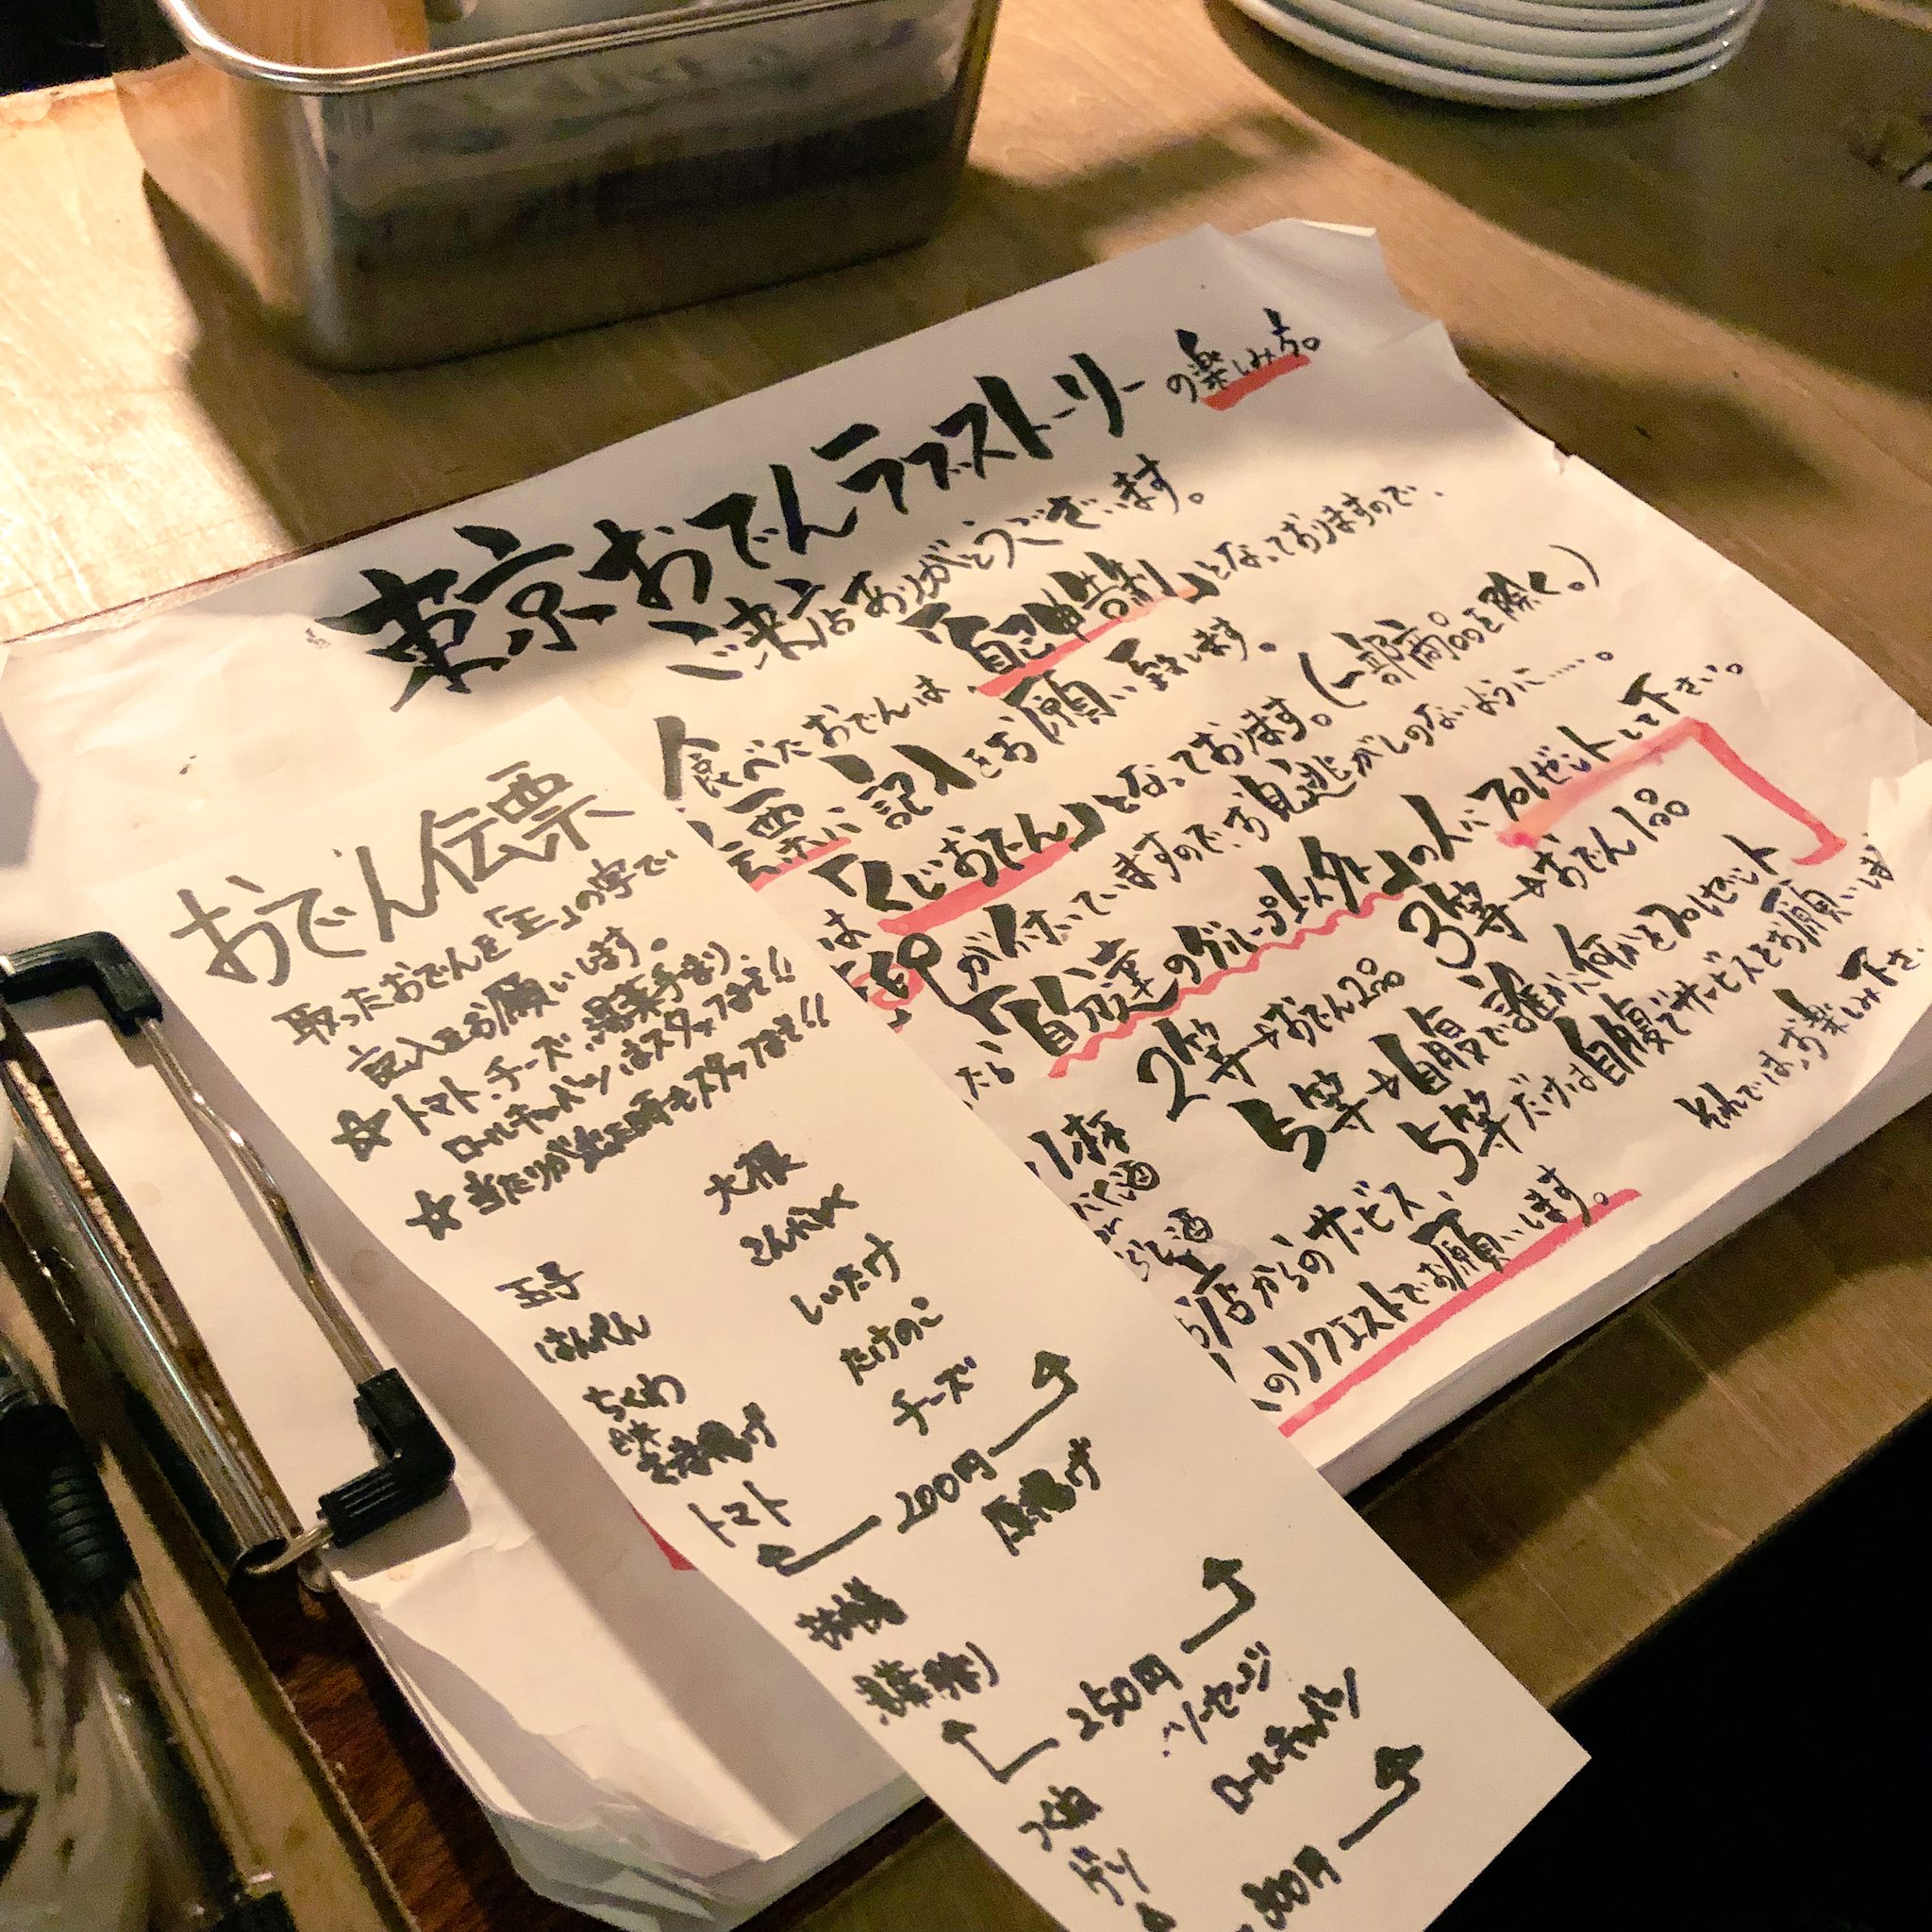 東京おでんラブストーリーの楽しみ方。
ご来店ありがとうございます。
食べたおでんは「自己申告制」となっておりますので、
伝票に記入をお願い致します。
「くじおでん」となっております。(一部商品を除く。)
が付いていますのでお見逃がしのないように……。
「自分達のグループ以外」の人にプレゼントして下さい。
2等→おでん2品
3等→おでん1品
5等→自腹で誰かに何かをプレゼント
店からのサービス、5等だけは自腹でサービスとお願いしま
のリクエストでお願いします。
それでは、お楽しみ下さ
おでん伝票
取ったおでんを「正」の字で
記入をお願いします。
☆トマト、チーズ、
ロールキャベツはスタッフまで!!
☆当たりが出た時もスタッフまで!!
玉子
大根
はんぺん
こんにゃく
ちくわ
しいたけ
たけのこ
トマト
チーズ
200円
厚揚げ
250円
ソーセージ
ロールキャベツ
300円